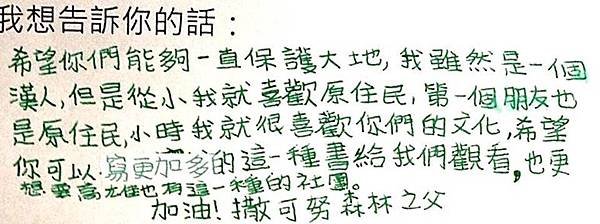 我想告訴你的話：
希望你們能夠一直保護大地，我雖然是一個
漢人，但是從小我就喜歡原住民，第一個朋友也
是原住民，小時我就很喜歡你們的文化，希望
你可以寫更加多的這一種書給我們觀看，也更
想要高雄也有這一種的社團。
加油！撒可努 森林之父